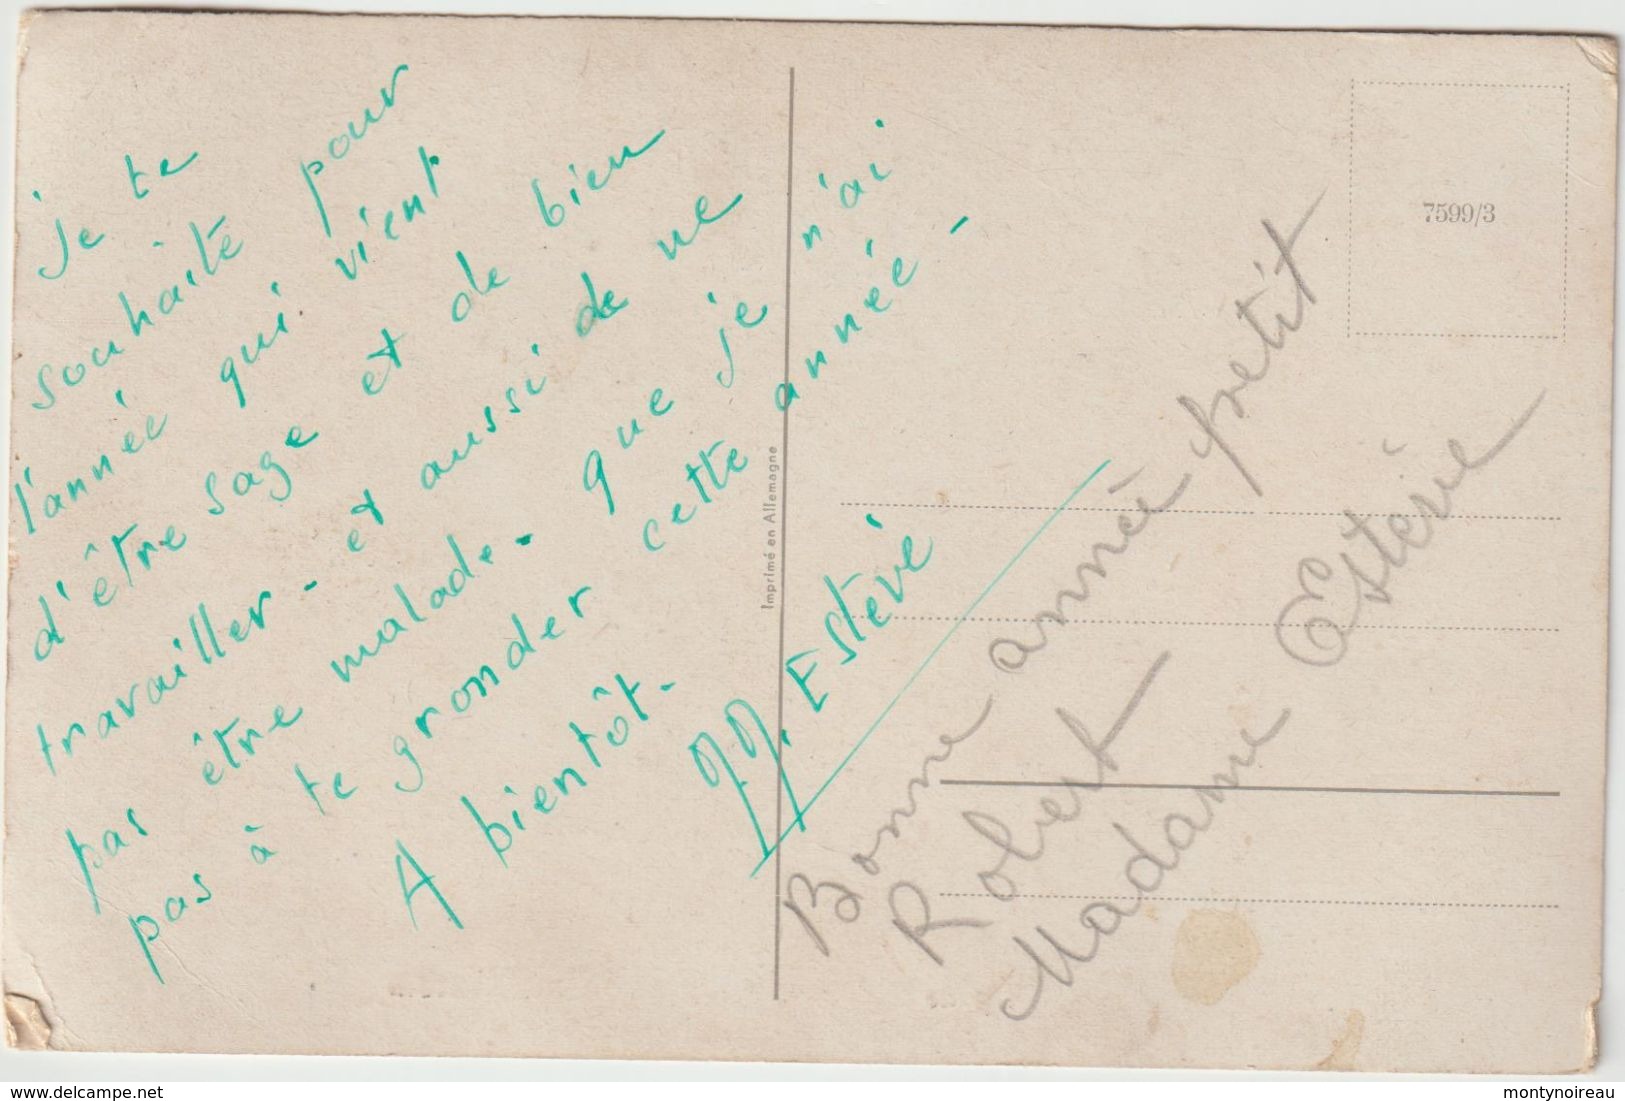 je te
souhaite pour
l'année qui vient
d'être sage et de bien
travailler - et aussi de ne
pas être malade - que je n'ai
pas à te gronder cette année -
A bientôt -
Estève
Imprimé en Allemagne
7599/3
Bonne année petit
Robert
Madame Estève
delcampe.net
montynoireau